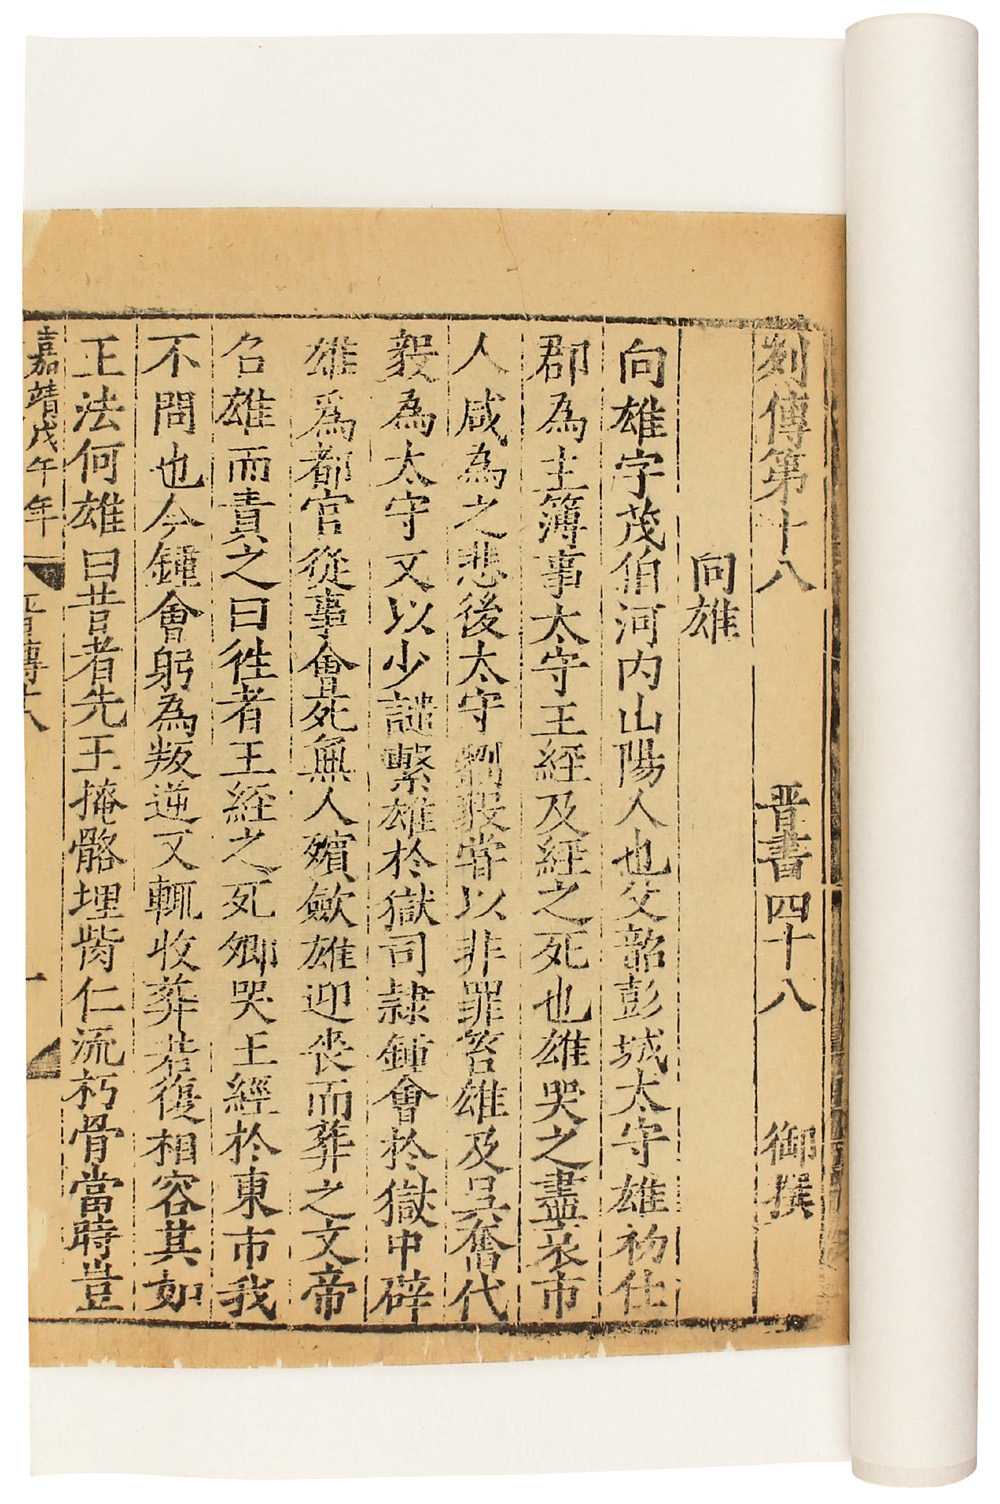 列傳第十八 晉書四十八 御撰
向雄
向雄字茂伯河內山陽人也父韶彭城太守雄初仕
郡為主簿事太守王經及經之死也雄哭之盡哀市
人咸為之悲後太守劉毅嘗以非罪笞雄及吳奮代
毅為太守又以少譴繫雄於獄司隸鍾會於獄中辟
雄爲都官從事會死無人殯斂雄迎喪而葬之文帝
召雄而責之曰徃者王經之死卿哭王經於東市我
不問也今鍾會躬為叛逆又輒收葬若復相容其如
王法何雄曰昔者先王掩骼埋胔仁流朽骨當時豈
嘉靖戊午年 晉傳十八 一